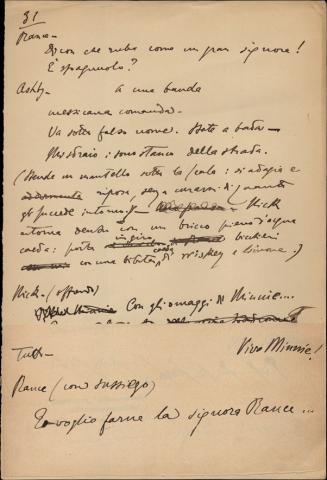 31
Rance –
Dicon che rubi come un gran signore!
È spagnuolo?
Ashby – A una banda
messicana comanda –
Va sotto falso nome. State a bada –
Mi sdraio: sono stanco della strada.
(Stende un mantello sotto la scala: si adagia e
riposa, senza curarsi di quanto
gli succede intorno) – Nick
ritorna dentro con un bricco pieno d'acqua
calda: porta in giro bicchieri
con una bibita di Wiskey e limone.)
Nick – (offrendo)
Con gli omaggi di Minnie....
Tutti – Viva Minnie!
Rance (con sussiego)
Io voglio farne la signora Rance...